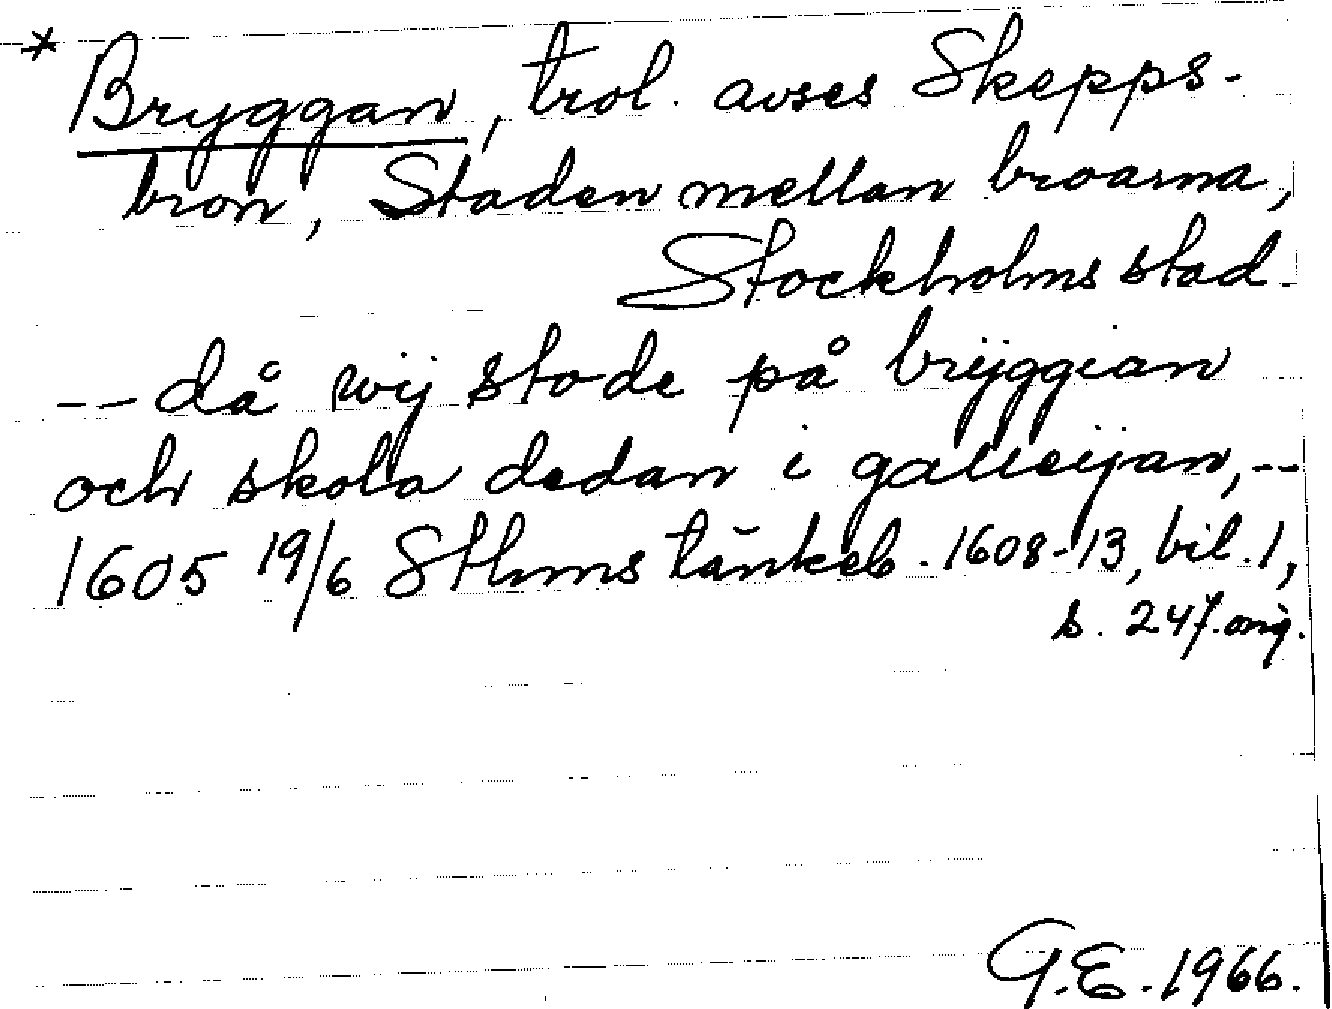 * Bryggan, trol. avses Skepps-
bron, Staden mellan broarna,
Stockholms stad.
-- då wij stode på brÿggian
och skola dedan i galleijan, --
1605 19/6 Sthms tänkeb. 1608-13, bil. 1,
s. 247. orig.
G.E. 1966.